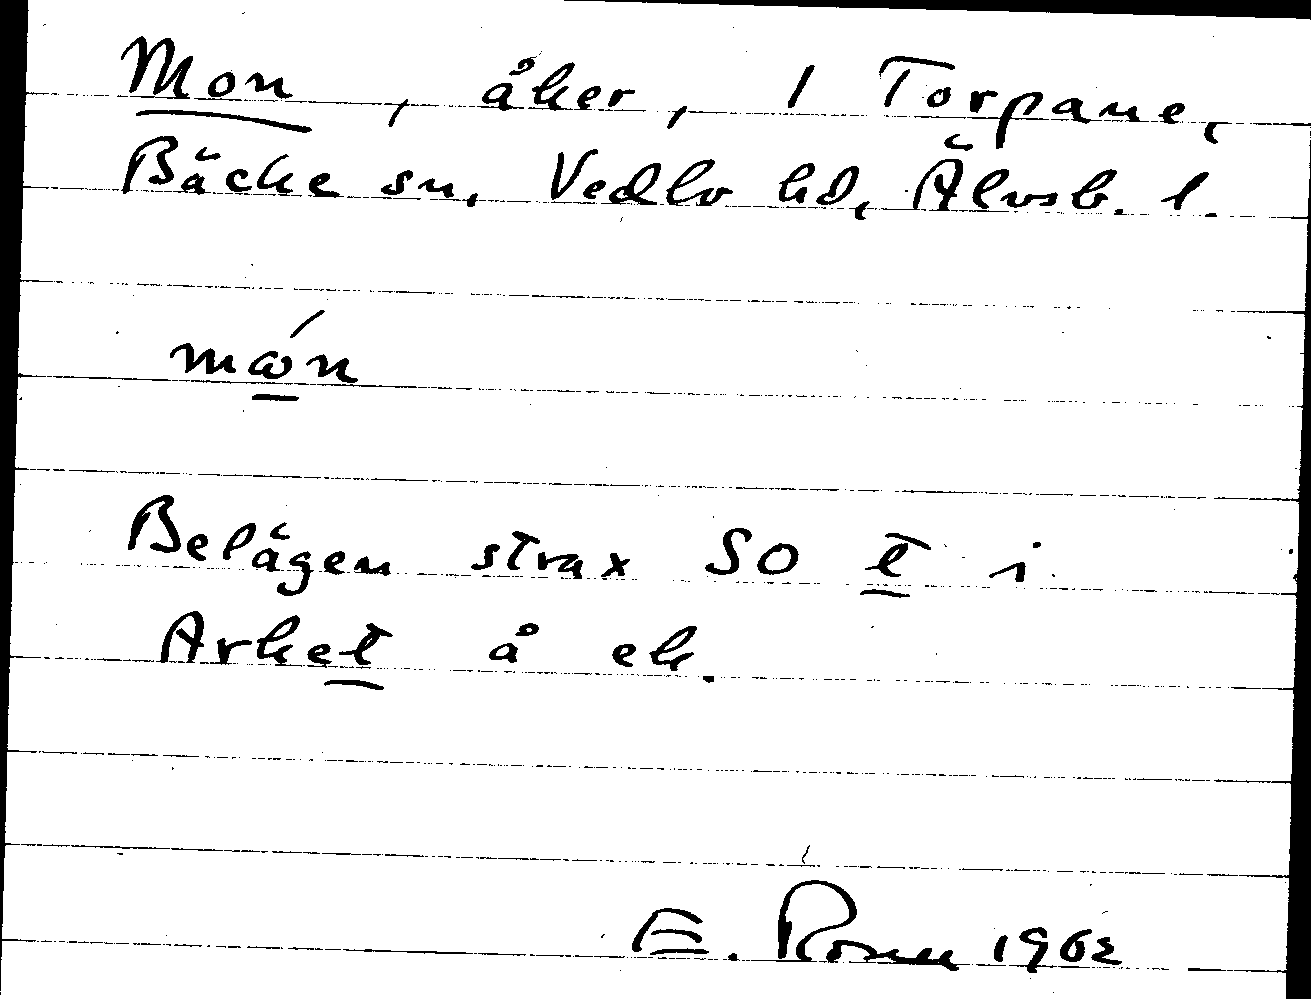 Mon, åker, 1 Torpane,
Bäcke sn, Vedbo hd, Älvsb. l.
mώn
Belägen strax SO t i
Arket å ek.
E. Rosén 1962